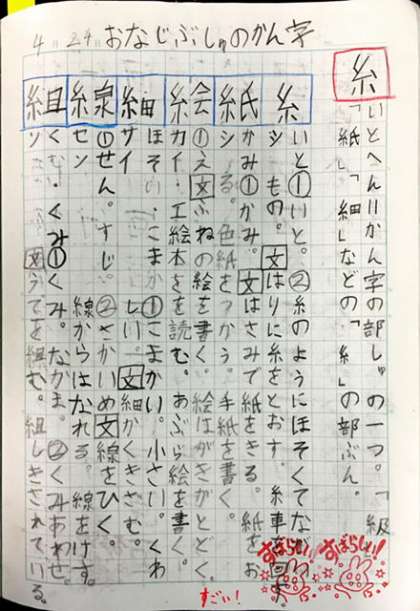 4 24 おなじぶしゅのかん字
糸
いとへん=かん字の部しゅの一つ。「級
「紙」「細」などの「糸」の部ぶん。
糸
いと①いと。②糸のようにほそくてなが
シ もの。文はりに糸をとおす。糸車
紙
かみ①かみ。文はさみで紙をきる。紙をお
シ る。色紙をつかう。手紙を書く。
絵
①え文ふねの絵を書く。絵はがきがとどく。
カイ・エ 絵本を読む。あぶら絵を書く。
細
ほそい・こまか ①こまかい。小さい。くわ
サイ しい。文細かくきざむ。
線
①せん。すじ。②さかいめ文線をひく。
セン 線からはなれる。線をけす。
組
くむ・くみ①くみ。なかま。②くみあわせ。
ソ 文うでを組む。組しきされている。
すばらしい!
すばらしい!
すごい!